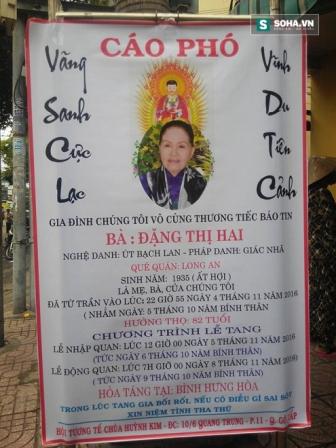 SOHA.VN
CÁO PHÓ
Vãng
Sanh
Cực
Lạc
Vĩnh
Du
Tiên
Cảnh
GIA ĐÌNH CHÚNG TÔI VÔ CÙNG THƯƠNG TIẾC BÁO TIN
BÀ : ĐẶNG THỊ HAI
NGHỆ DANH: ÚT BẠCH LAN - PHÁP DANH: GIÁC NHÃ
QUÊ QUÁN: LONG AN
SINH NĂM: 1935 (ẤT HỢI)
LÀ MẸ, BÀ, CỦA CHÚNG TÔI
ĐÃ TỪ TRẦN VÀO LÚC: 22 GIỜ 55 NGÀY 4 THÁNG 11 NĂM 2016
( NHẰM NGÀY: 5 THÁNG 10 NĂM BÍNH THÂN)
HƯỞNG THỌ: 82 TUỔI
CHƯƠNG TRÌNH LỄ TANG
LỄ NHẬP QUAN: LÚC 12 GIỜ 00 NGÀY 5 THÁNG 11 NĂM 2016
(TỨC NGÀY 6 THÁNG 10 NĂM BÍNH THÂN)
LỄ ĐỘNG QUAN: LÚC 7H GIỜ 00 NGÀY 8 THÁNG 11 NĂM 2016
(TỨC NGÀY 9 THÁNG 10 NĂM BÍNH THÂN)
HỎA TÁNG TẠI: BÌNH HƯNG HÒA
TRONG LÚC TANG GIA BỐI RỐI, NẾU CÓ ĐIỀU GÌ SAI SÓT
XIN NIỆM TÌNH THA THỨ
HỘI TƯƠNG TẾ CHÙA HUỲNH KIM - ĐC: 10/6 QUANG TRUNG - P.11 - Q. GÒ VẤP